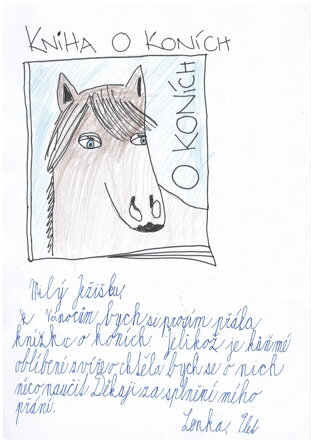 KNIHA O KONÍCH
O KONÍCH
Milý Ježíšku,
k Vánocům bych si prosím přála
knížku o koních. Jelikož je kůň mé
oblíbené zvíře chtěla bych se o nich
něco naučit. Děkuji za splnění mého
přání.
Lenka, 9let